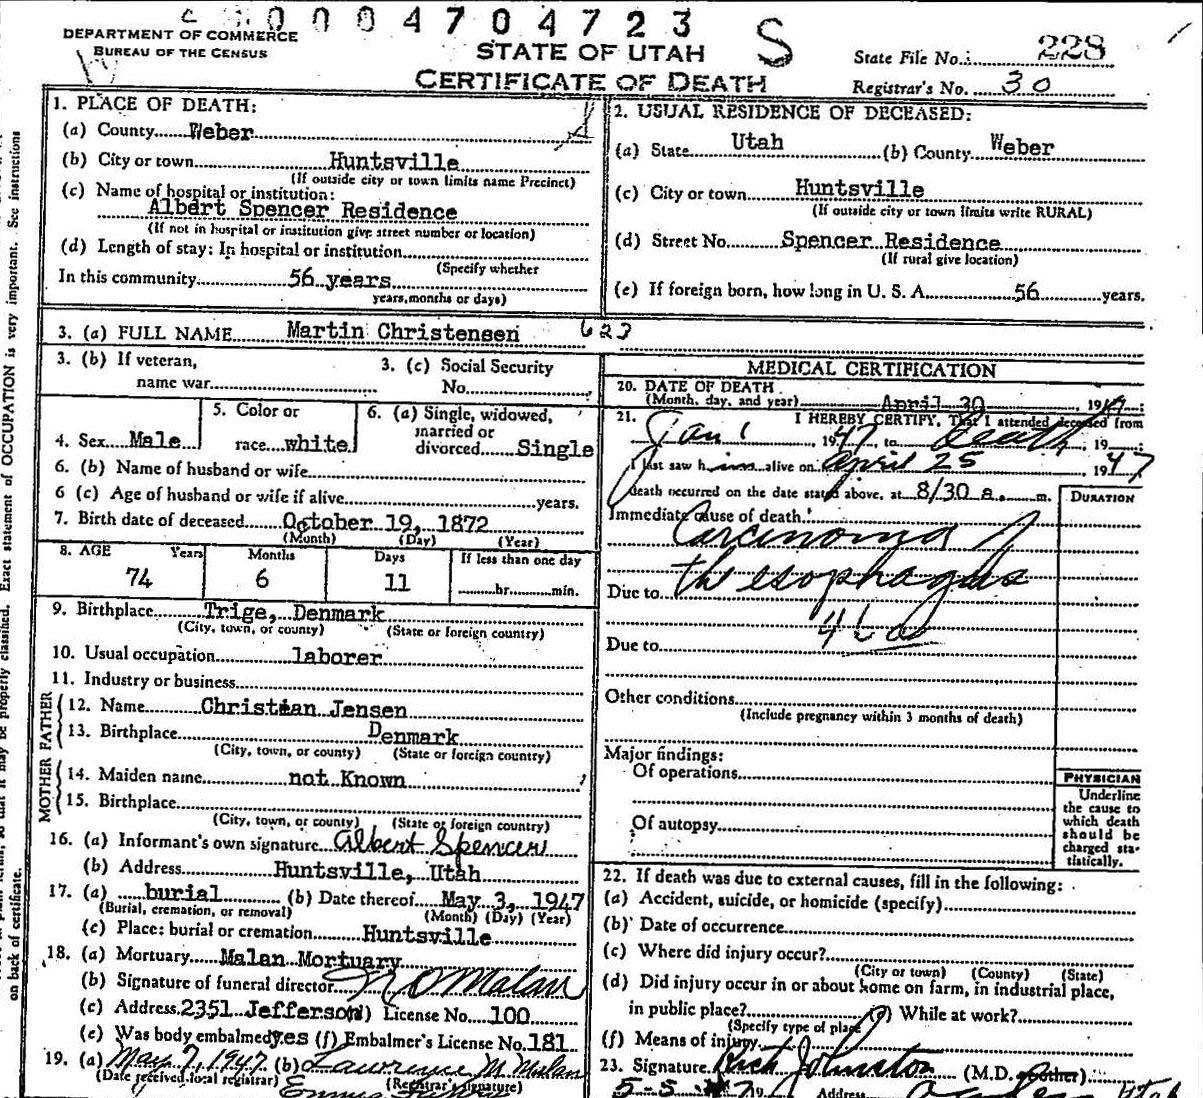 0004704723
DEPARTMENT OF COMMERCE
BUREAU OF THE CENSUS
STATE OF UTAH
CERTIFICATE OF DEATH
S
State File No. 228
Registrar's No. 30
1. PLACE OF DEATH:
(a) County Weber
(b) City or town Huntsville
(If outside city or town limits name Precinct)
(c) Name of hospital or institution:
Albert Spencer Residence
(If not in hospital or institution give street number or location)
(d) Length of stay: In hospital or institution
(Specify whether
In this community 56 years
years, months or days)
2. USUAL RESIDENCE OF DECEASED:
(a) State Utah (b) County Weber
(c) City or town Huntsville
(If outside city or town limits write RURAL)
(d) Street No. Spencer Residence
(If rural give location)
(e) If foreign born, how long in U. S. A. 56 years.
3. (a) FULL NAME Martin Christensen 623
3. (b) If veteran,
name war
3. (c) Social Security
No.
4. Sex Male
5. Color or
race white
6. (a) Single, widowed,
married or
divorced Single
6. (b) Name of husband or wife
6 (c) Age of husband or wife if alive years.
7. Birth date of deceased October 19, 1872
(Month) (Day) (Year)
8. AGE Years Months Days If less than one day
74 6 11 hr. min.
9. Birthplace Trige, Denmark
(City, town, or county) (State or foreign country)
10. Usual occupation laborer
11. Industry or business
FATHER
12. Name Christian Jensen
13. Birthplace Denmark
(City, town, or county) (State or foreign country)
MOTHER
14. Maiden name not Known
15. Birthplace
(City, town, or county) (State or foreign country)
16. (a) Informant's own signature Albert Spencer
(b) Address Huntsville, Utah
17. (a) burial (b) Date thereof May 3, 1947
(Burial, cremation, or removal) (Month) (Day) (Year)
(c) Place: burial or cremation Huntsville
18. (a) Mortuary Malan Mortuary
(b) Signature of funeral director N O Malan
(c) Address 2351 Jefferson (d) License No. 100
(e) Was body embalmed yes (f) Embalmer's License No. 181
19. (a) May 7, 1947 (b) Lawrence M Malan
(Date received local registrar) (Registrar's signature)
MEDICAL CERTIFICATION
20. DATE OF DEATH
(Month, day, and year) April 30, 1947
21. I HEREBY CERTIFY, That I attended deceased from
Jan 1, 1947, to Death, 19
I last saw him alive on April 25, 1947
death occurred on the date stated above, at 8/30 a. m.
DURATION
Immediate cause of death
Carcinoma of
the esophagus
Due to
46a
Due to
Other conditions
(Include pregnancy within 3 months of death)
Major findings:
Of operations
Of autopsy
PHYSICIAN
Underline
the cause to
which death
should be
charged sta-
tistically.
22. If death was due to external causes, fill in the following:
(a) Accident, suicide, or homicide (specify)
(b) Date of occurrence
(c) Where did injury occur?
(City or town) (County) (State)
(d) Did injury occur in or about home on farm, in industrial place,
in public place? (e) While at work?
(Specify type of place)
(f) Means of injury
23. Signature Rich Johnston (M.D. or other)
Address Utah
Exact statement of OCCUPATION is very important. See instructions
so that it may be properly classified.
on back of certificate.